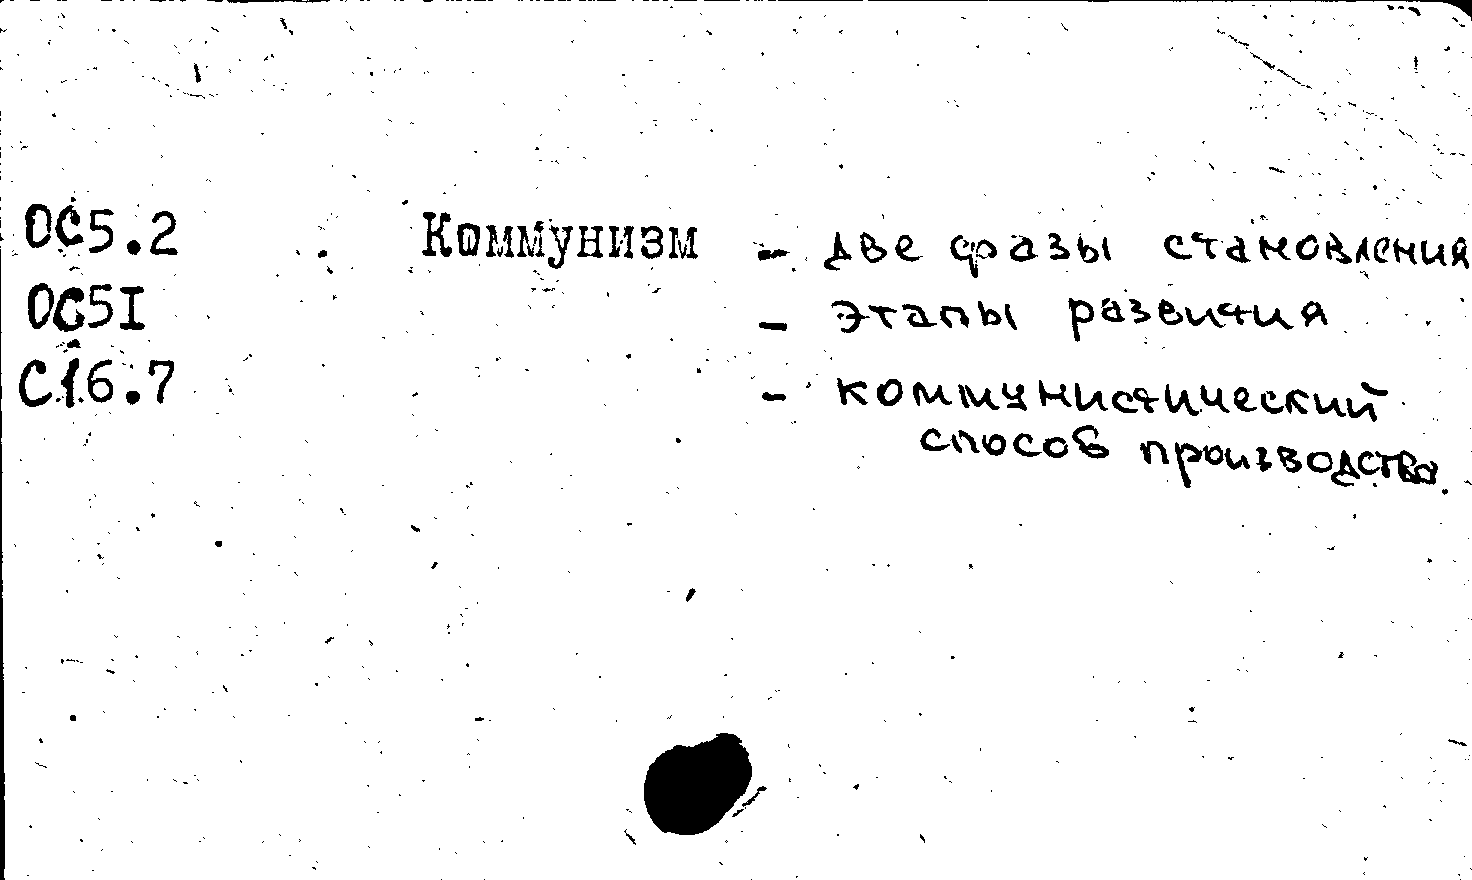 ОС5.2 Коммунизм – две фазы становления
ОС5I – этапы развития
С16.7 – коммунистический
способ производства.